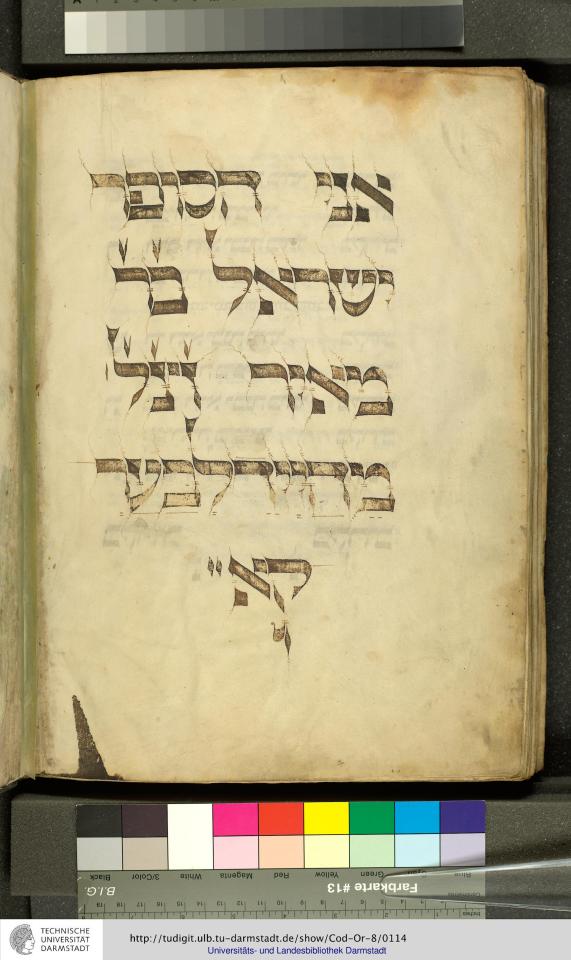 אני הסופר
ישראל בר
מאיר זצל
מהיידלבער
קא"
B.I.G.
Farbkarte #13
Blue
Cyan
Green
Yellow
Red
Magenta
White
3/Color
Black
TECHNISCHE
UNIVERSITÄT
DARMSTADT
http://tudigit.ulb.tu-darmstadt.de/show/Cod-Or-8/0114
Universitäts- und Landesbibliothek Darmstadt